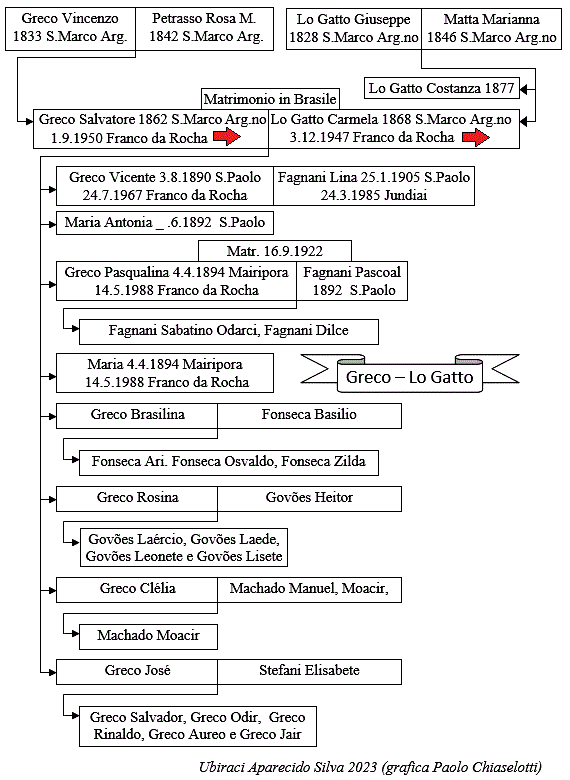 Greco Vincenzo
1833 S.Marco Arg.
Petrasso Rosa M.
1842 S.Marco Arg.
Lo Gatto Giuseppe
1828 S.Marco Arg.no
Matta Marianna
1846 S.Marco Arg.no
Lo Gatto Costanza 1877
Matrimonio in Brasile
Greco Salvatore 1862 S.Marco Arg.no
1.9.1950 Franco da Rocha
Lo Gatto Carmela 1868 S.Marco Arg.no
3.12.1947 Franco da Rocha
Greco Vicente 3.8.1890 S.Paolo
24.7.1967 Franco da Rocha
Fagnani Lina 25.1.1905 S.Paolo
24.3.1985 Jundiai
Maria Antonia _ .6.1892 S.Paolo
Matr. 16.9.1922
Greco Pasqualina 4.4.1894 Mairipora
14.5.1988 Franco da Rocha
Fagnani Pascoal
1892 S.Paolo
Fagnani Sabatino Odarci, Fagnani Dilce
Maria 4.4.1894 Mairipora
14.5.1988 Franco da Rocha
Greco – Lo Gatto
Greco Brasilina
Fonseca Basilio
Fonseca Ari. Fonseca Osvaldo, Fonseca Zilda
Greco Rosina
Govões Heitor
Govões Laércio, Govões Laede,
Govões Leonete e Govões Lisete
Greco Clélia
Machado Manuel, Moacir,
Machado Moacir
Greco José
Stefani Elisabete
Greco Salvador, Greco Odir, Greco
Rinaldo, Greco Aureo e Greco Jair
Ubiraci Aparecido Silva 2023 (grafica Paolo Chiaselotti)